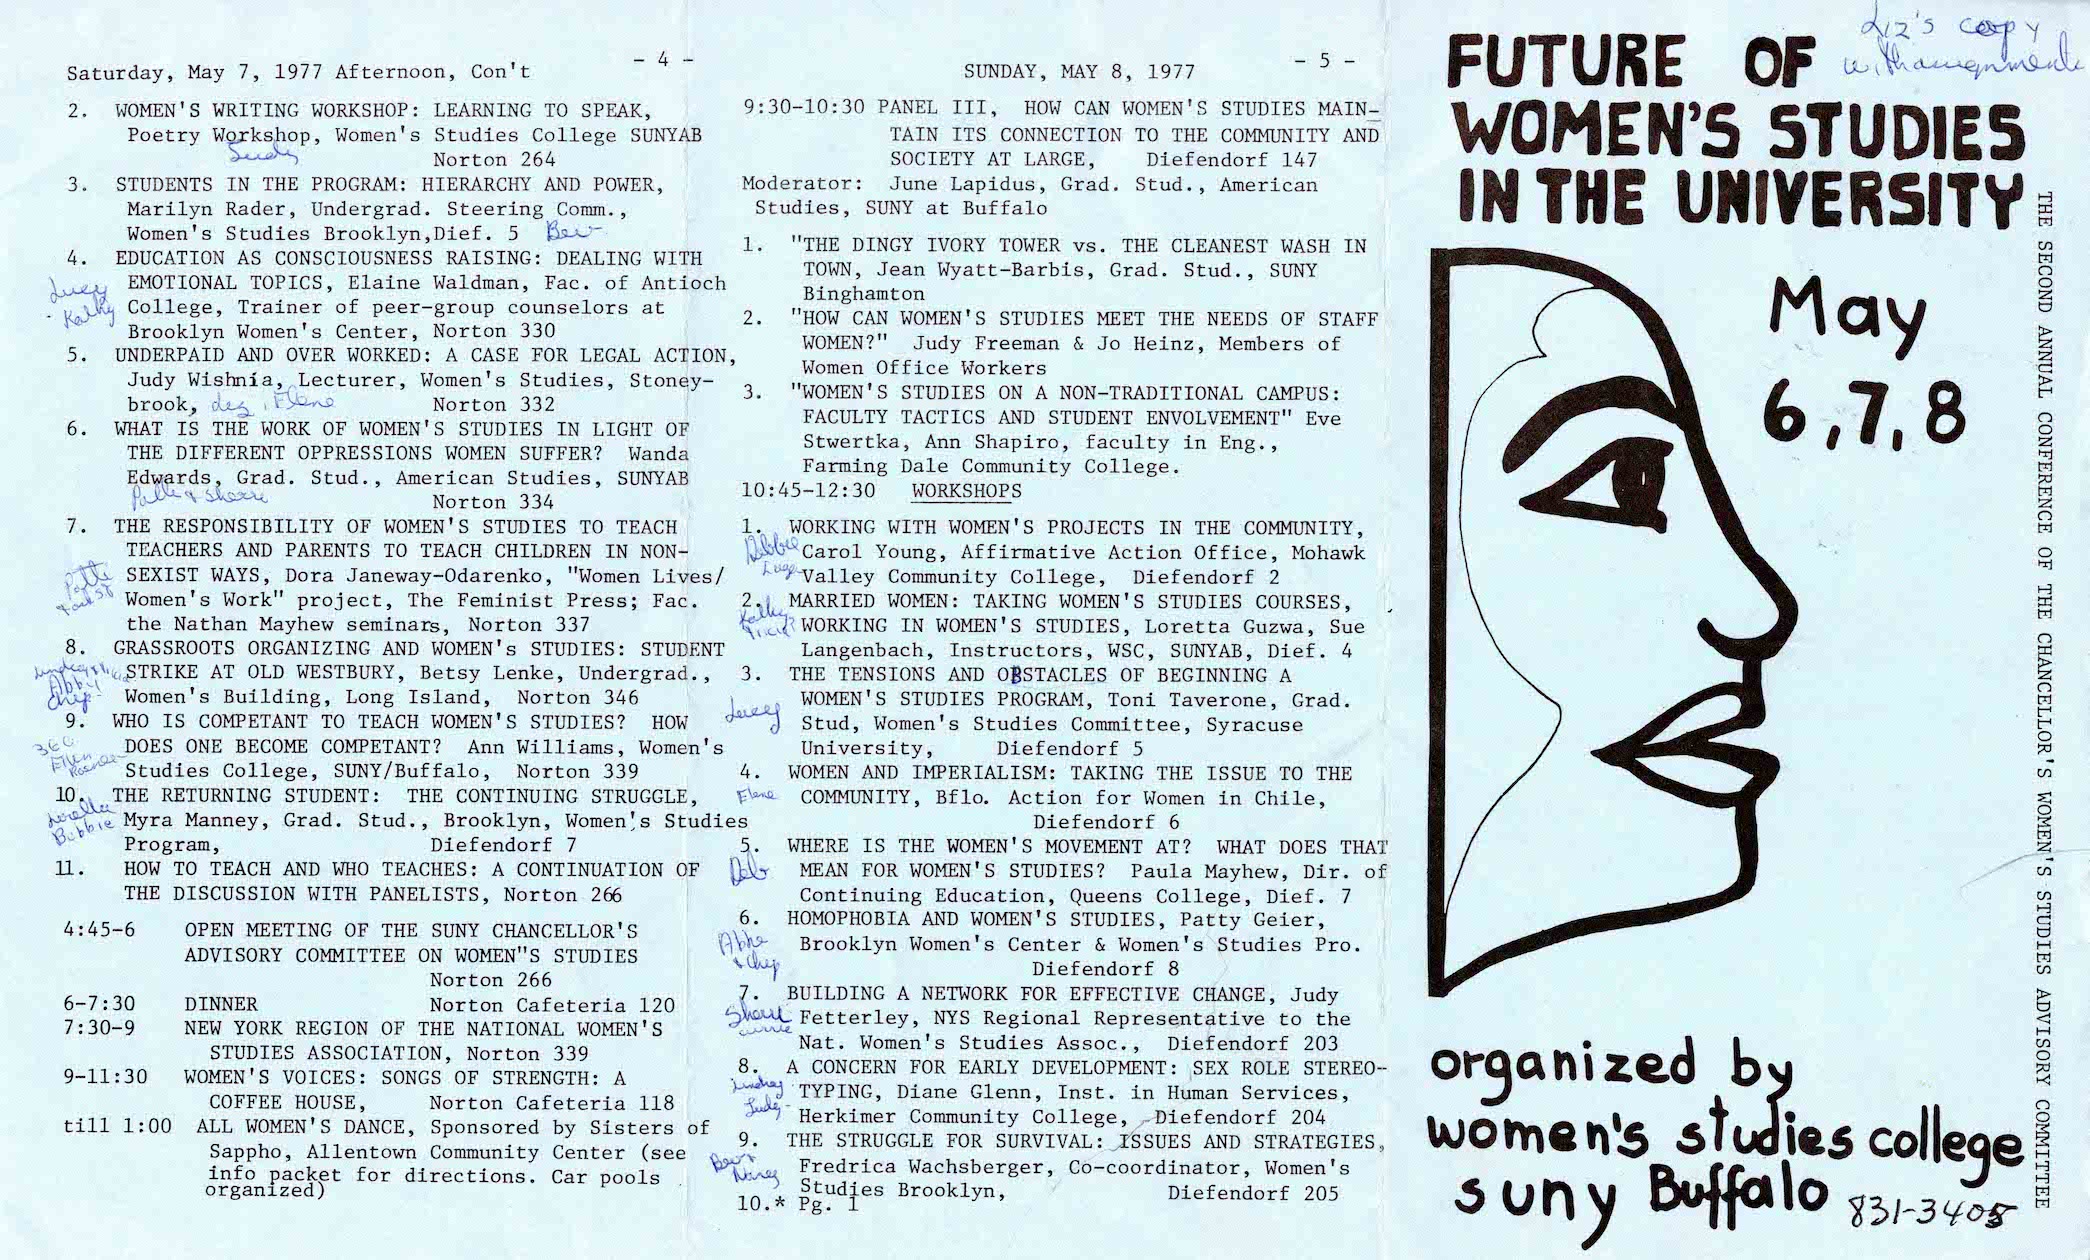 - 4 -
Saturday, May 7, 1977 Afternoon, Con't
2. WOMEN'S WRITING WORKSHOP: LEARNING TO SPEAK,
Poetry Workshop, Women's Studies College SUNYAB
Judy
Norton 264
3. STUDENTS IN THE PROGRAM: HIERARCHY AND POWER,
Marilyn Rader, Undergrad. Steering Comm.,
Women's Studies Brooklyn,Dief. 5 Bev
4. EDUCATION AS CONSCIOUSNESS RAISING: DEALING WITH
Lucy EMOTIONAL TOPICS, Elaine Waldman, Fac. of Antioch
Kathy College, Trainer of peer-group counselors at
Brooklyn Women's Center, Norton 330
5. UNDERPAID AND OVER WORKED: A CASE FOR LEGAL ACTION,
Judy Wishnia, Lecturer, Women's Studies, Stoney-
brook, Liz, Elene Norton 332
6. WHAT IS THE WORK OF WOMEN'S STUDIES IN LIGHT OF
THE DIFFERENT OPPRESSIONS WOMEN SUFFER? Wanda
Edwards, Grad. Stud., American Studies, SUNYAB
Patti & Sherri Norton 334
7. THE RESPONSIBILITY OF WOMEN'S STUDIES TO TEACH
TEACHERS AND PARENTS TO TEACH CHILDREN IN NON-
Patti SEXIST WAYS, Dora Janeway-Odarenko, "Women Lives/
Women's Work" project, The Feminist Press; Fac.
the Nathan Mayhew seminars, Norton 337
8. GRASSROOTS ORGANIZING AND WOMEN's STUDIES: STUDENT
STRIKE AT OLD WESTBURY, Betsy Lenke, Undergrad.,
Abby Women's Building, Long Island, Norton 346
Chip
9. WHO IS COMPETANT TO TEACH WOMEN'S STUDIES? HOW
DOES ONE BECOME COMPETANT? Ann Williams, Women's
Ellen Studies College, SUNY/Buffalo, Norton 339
10. THE RETURNING STUDENT: THE CONTINUING STRUGGLE,
Loretta Myra Manney, Grad. Stud., Brooklyn, Women's Studies
Bobbie Program, Diefendorf 7
11. HOW TO TEACH AND WHO TEACHES: A CONTINUATION OF
THE DISCUSSION WITH PANELISTS, Norton 266
4:45-6 OPEN MEETING OF THE SUNY CHANCELLOR'S
ADVISORY COMMITTEE ON WOMEN"S STUDIES
Norton 266
6-7:30 DINNER Norton Cafeteria 120
7:30-9 NEW YORK REGION OF THE NATIONAL WOMEN'S
STUDIES ASSOCIATION, Norton 339
9-11:30 WOMEN'S VOICES: SONGS OF STRENGTH: A
COFFEE HOUSE, Norton Cafeteria 118
till 1:00 ALL WOMEN'S DANCE, Sponsored by Sisters of
Sappho, Allentown Community Center (see
info packet for directions. Car pools
organized)
- 5 -
SUNDAY, MAY 8, 1977
9:30-10:30 PANEL III, HOW CAN WOMEN'S STUDIES MAIN-
TAIN ITS CONNECTION TO THE COMMUNITY AND
SOCIETY AT LARGE, Diefendorf 147
Moderator: June Lapidus, Grad. Stud., American
Studies, SUNY at Buffalo
1. "THE DINGY IVORY TOWER vs. THE CLEANEST WASH IN
TOWN, Jean Wyatt-Barbis, Grad. Stud., SUNY
Binghamton
2. "HOW CAN WOMEN'S STUDIES MEET THE NEEDS OF STAFF
WOMEN?" Judy Freeman & Jo Heinz, Members of
Women Office Workers
3. "WOMEN'S STUDIES ON A NON-TRADITIONAL CAMPUS:
FACULTY TACTICS AND STUDENT ENVOLVEMENT" Eve
Stwertka, Ann Shapiro, faculty in Eng.,
Farming Dale Community College.
10:45-12:30 WORKSHOPS
1. WORKING WITH WOMEN'S PROJECTS IN THE COMMUNITY,
Debbie Carol Young, Affirmative Action Office, Mohawk
Valley Community College, Diefendorf 2
2. MARRIED WOMEN: TAKING WOMEN'S STUDIES COURSES,
Kathy WORKING IN WOMEN'S STUDIES, Loretta Guzwa, Sue
Langenbach, Instructors, WSC, SUNYAB, Dief. 4
3. THE TENSIONS AND OBSTACLES OF BEGINNING A
Lucy WOMEN'S STUDIES PROGRAM, Toni Taverone, Grad.
Stud, Women's Studies Committee, Syracuse
University, Diefendorf 5
4. WOMEN AND IMPERIALISM: TAKING THE ISSUE TO THE
Elene COMMUNITY, Bflo. Action for Women in Chile,
Diefendorf 6
5. WHERE IS THE WOMEN'S MOVEMENT AT? WHAT DOES THAT
Deb MEAN FOR WOMEN'S STUDIES? Paula Mayhew, Dir. of
Continuing Education, Queens College, Dief. 7
6. HOMOPHOBIA AND WOMEN'S STUDIES, Patty Geier,
Brooklyn Women's Center & Women's Studies Pro.
& Chip Diefendorf 8
7. BUILDING A NETWORK FOR EFFECTIVE CHANGE, Judy
Sherri Fetterley, NYS Regional Representative to the
Nat. Women's Studies Assoc., Diefendorf 203
8. A CONCERN FOR EARLY DEVELOPMENT: SEX ROLE STEREO-
Lindsay TYPING, Diane Glenn, Inst. in Human Services,
Judy Herkimer Community College, Diefendorf 204
9. THE STRUGGLE FOR SURVIVAL: ISSUES AND STRATEGIES,
Bev & Fredrica Wachsberger, Co-coordinator, Women's
Nancy Studies Brooklyn, Diefendorf 205
10.* Pg. 1
Liz's copy
with assignments
FUTURE OF
WOMEN'S STUDIES
IN THE UNIVERSITY
May
6,7,8
THE SECOND ANNUAL CONFERENCE OF THE CHANCELLOR'S WOMEN'S STUDIES ADVISORY COMMITTEE
organized by
women's studies college
suny Buffalo 831-3405